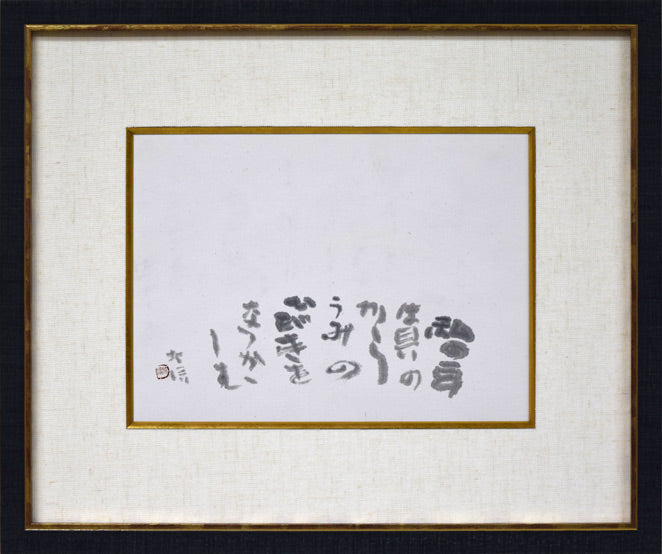 私の耳
は貝の
から
うみの
ひびきを
なつか
しむ